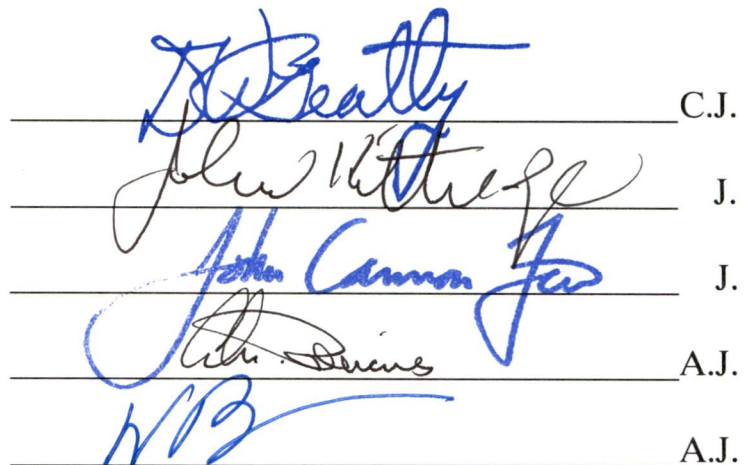 DWBeatty C.J.
John Kittredge J.
John Cannon Few J.
A.J.
A.J.